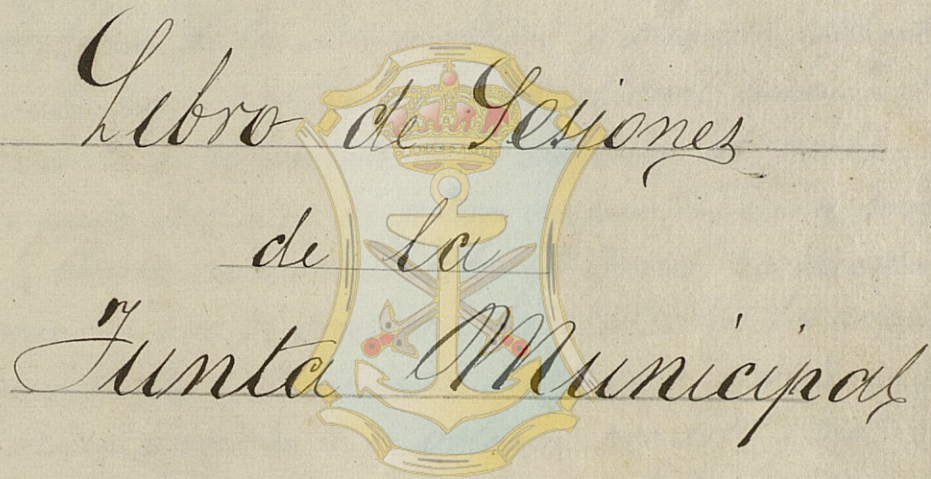 Libro de Sesiones
de la
Junta Municipal